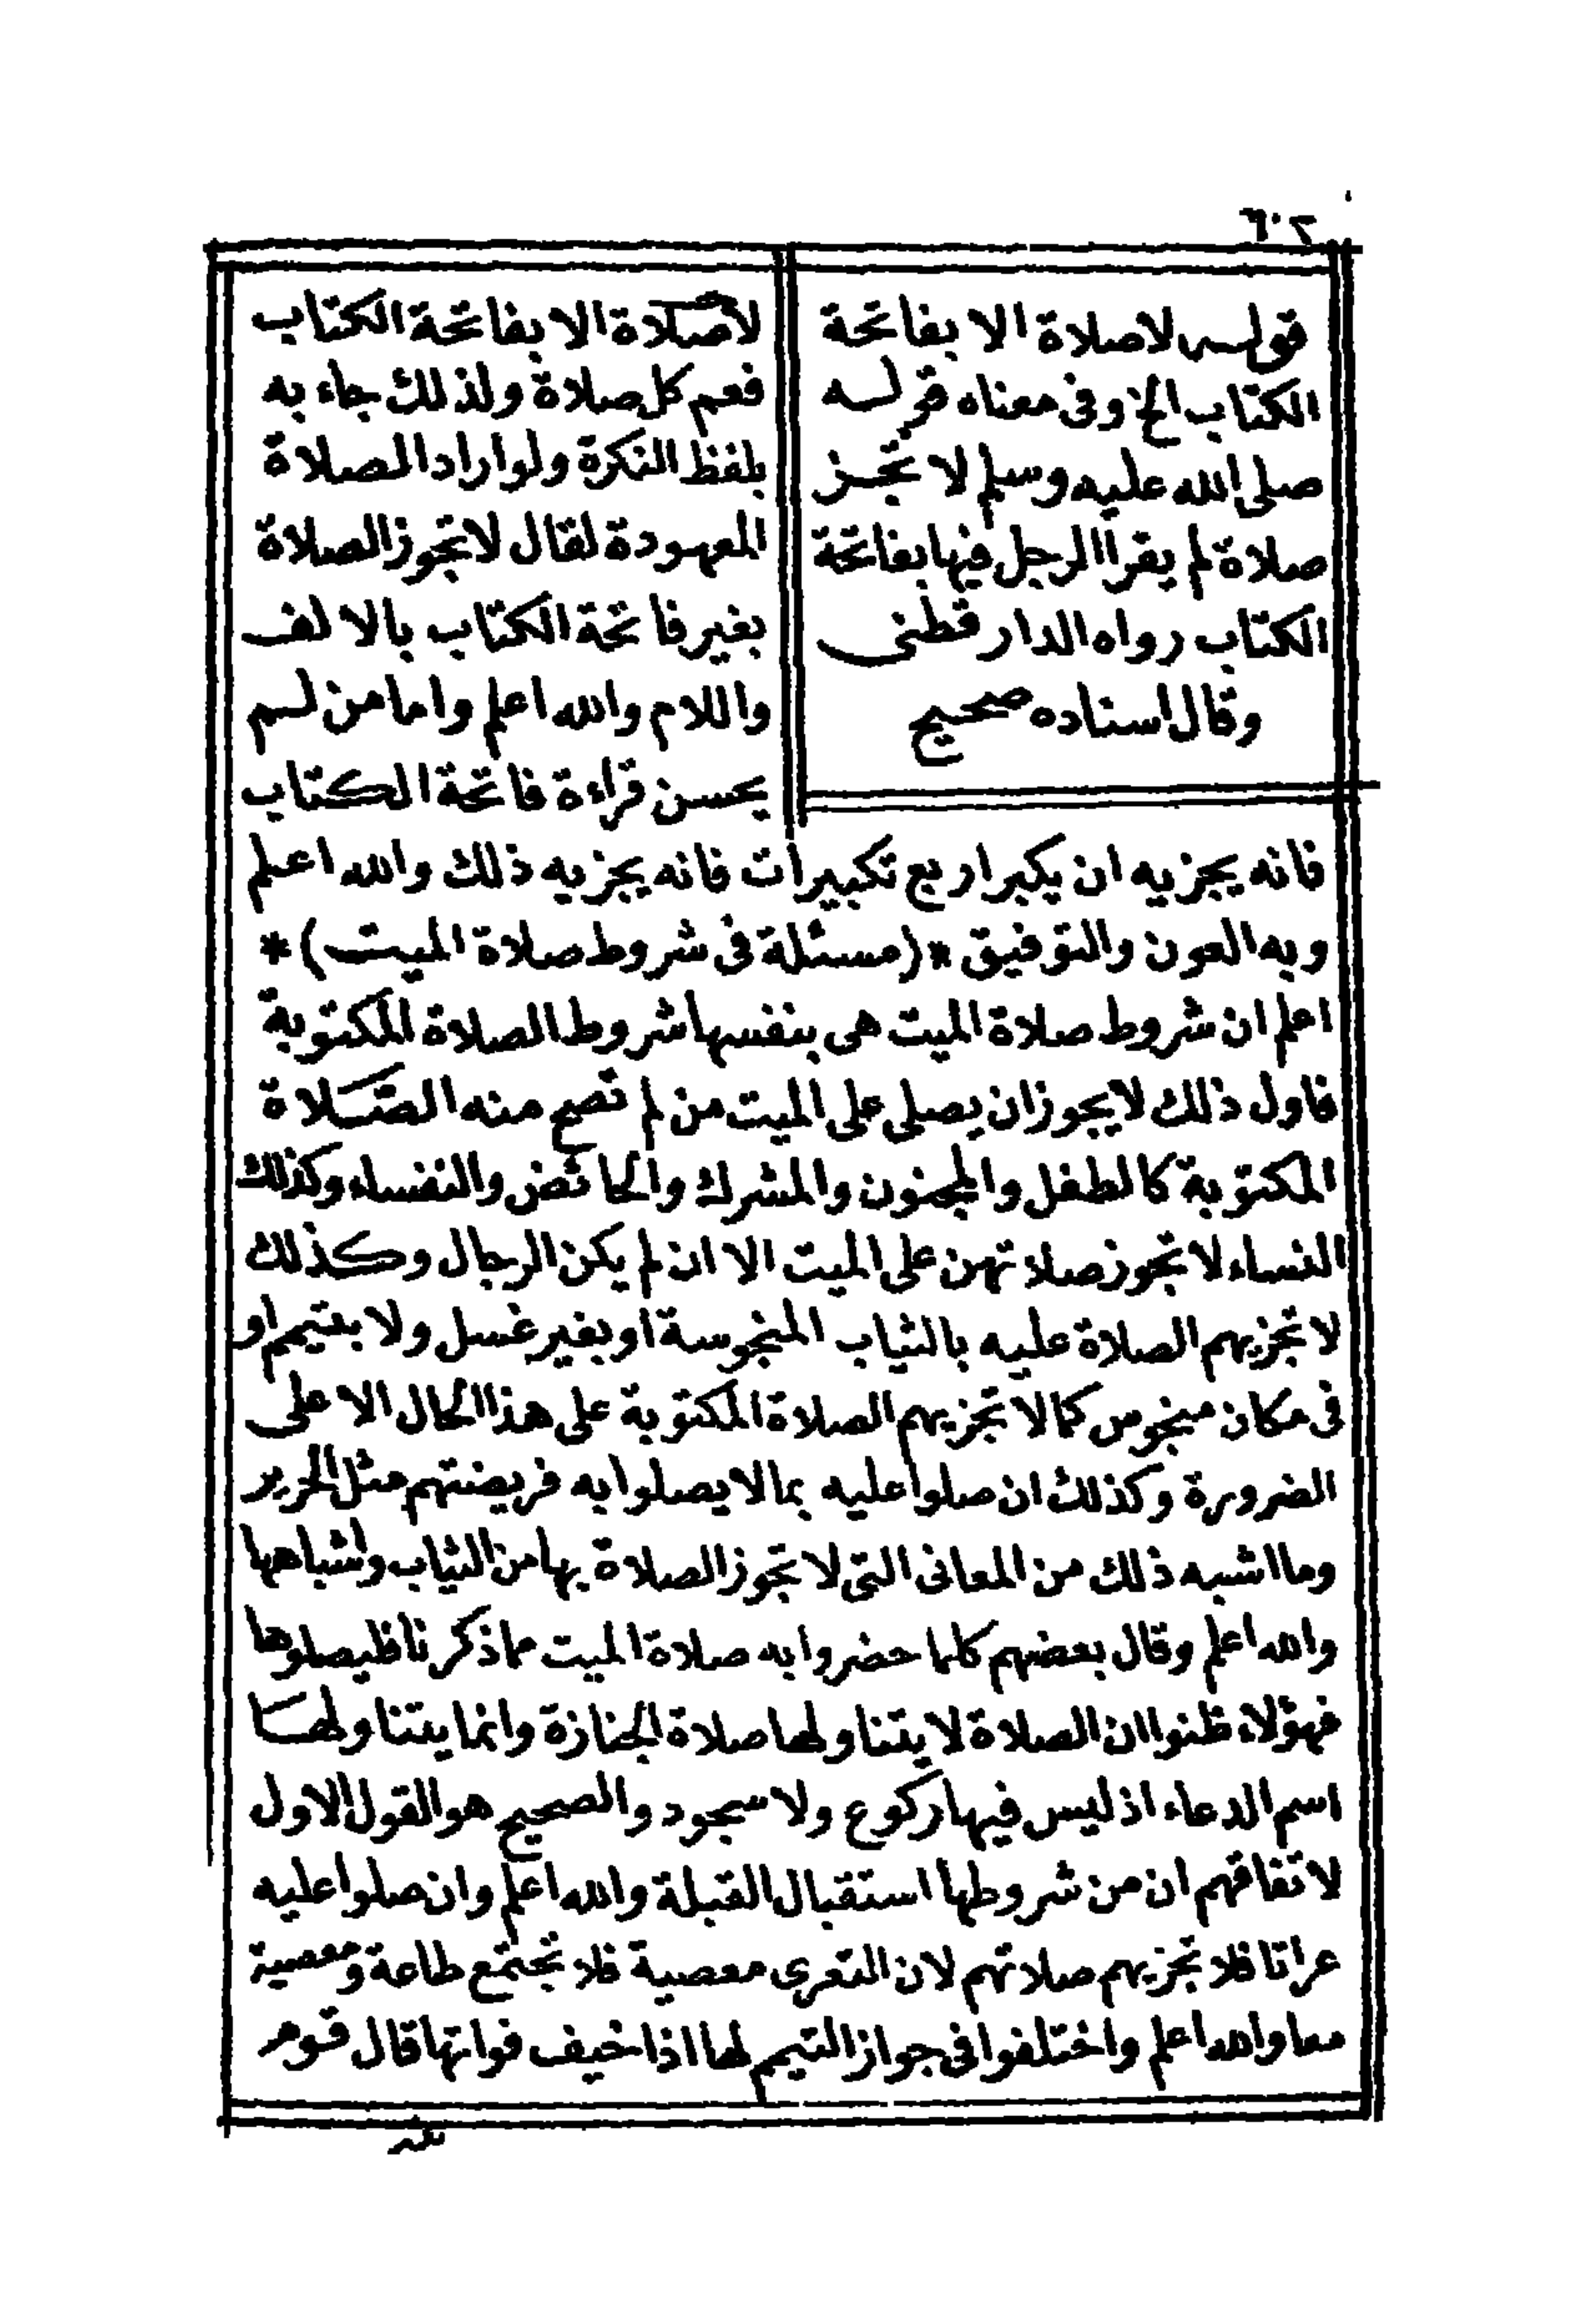 ٦٠٢
قوله لاصلاة الا بفاتحة
الكتاب الخ وفى معناه قوله
صلى الله عليه وسلم لا تجز
صلاة لم يقرا الرجل فيها بفاتحة
الكتاب رواه الدار قطنى
وقال اسناده صحيح
لاصلاة الا بفاتحة الكتاب
فعم كل صلاة ولذلك جاء به
بلفظ النكرة ولو اراد الصلاة
المعهودة لقال لا تجوز الصلاة
بغير فاتحة الكتاب بالالف
واللام والله اعلم واما من لم
يحسن قراءة فاتحة الكتاب
فانه يجزيه ان يكبر اربع تكبيرات فانه يجزيه ذلك والله اعلم
وبه العون والتوفيق *(مسئلة فى شروط صلاة الميت)*
اعلم ان شروط صلاة الميت هى بنفسها شروط الصلاة المكتوبة
فاول ذلك لا يجوز ان يصلى على الميت من لم تصح منه الصلاة
المكتوبة كالطفل والمجنون والمشرك والحائض والنفساء وكذلك
النساء لا تجوز صلاتهن على الميت الا ان لم يكن الرجال وكذلك
لا تجزيهم الصلاة عليه بالثياب المنجوسة او بغير غسل ولا بتيمم او
فى مكان منجوس كما لا تجزيهم الصلاة المكتوبة على هذا الحال الا على
الضرورة وكذلك ان صلوا عليه بما لا يصلوا به فريضتهم مثل الحرير
وما اشبه ذلك من المعانى التى لا تجوز الصلاة بها من الثياب واشباهها
والله اعلم وقال بعضهم كلما حضروا به صلاة الميت مما ذكرنا فليصلوها
فهؤلاء ظنوا ان الصلاة لا يتناولها صلاة الجنازة وانما يتناولها
اسم الدعاء اذ ليس فيها ركوع ولا سجود والصحيح هو القول الاول
لاتفاقهم ان من شروطها استقبال القبلة والله اعلم وان صلوا عليه
عراتا فلا تجزيهم صلاتهم لان التعرى معصية فلا تجتمع طاعة ومعصية
معا والله اعلم واختلفوا فى جواز التيمم لها اذا خيف فواتها قال قوم